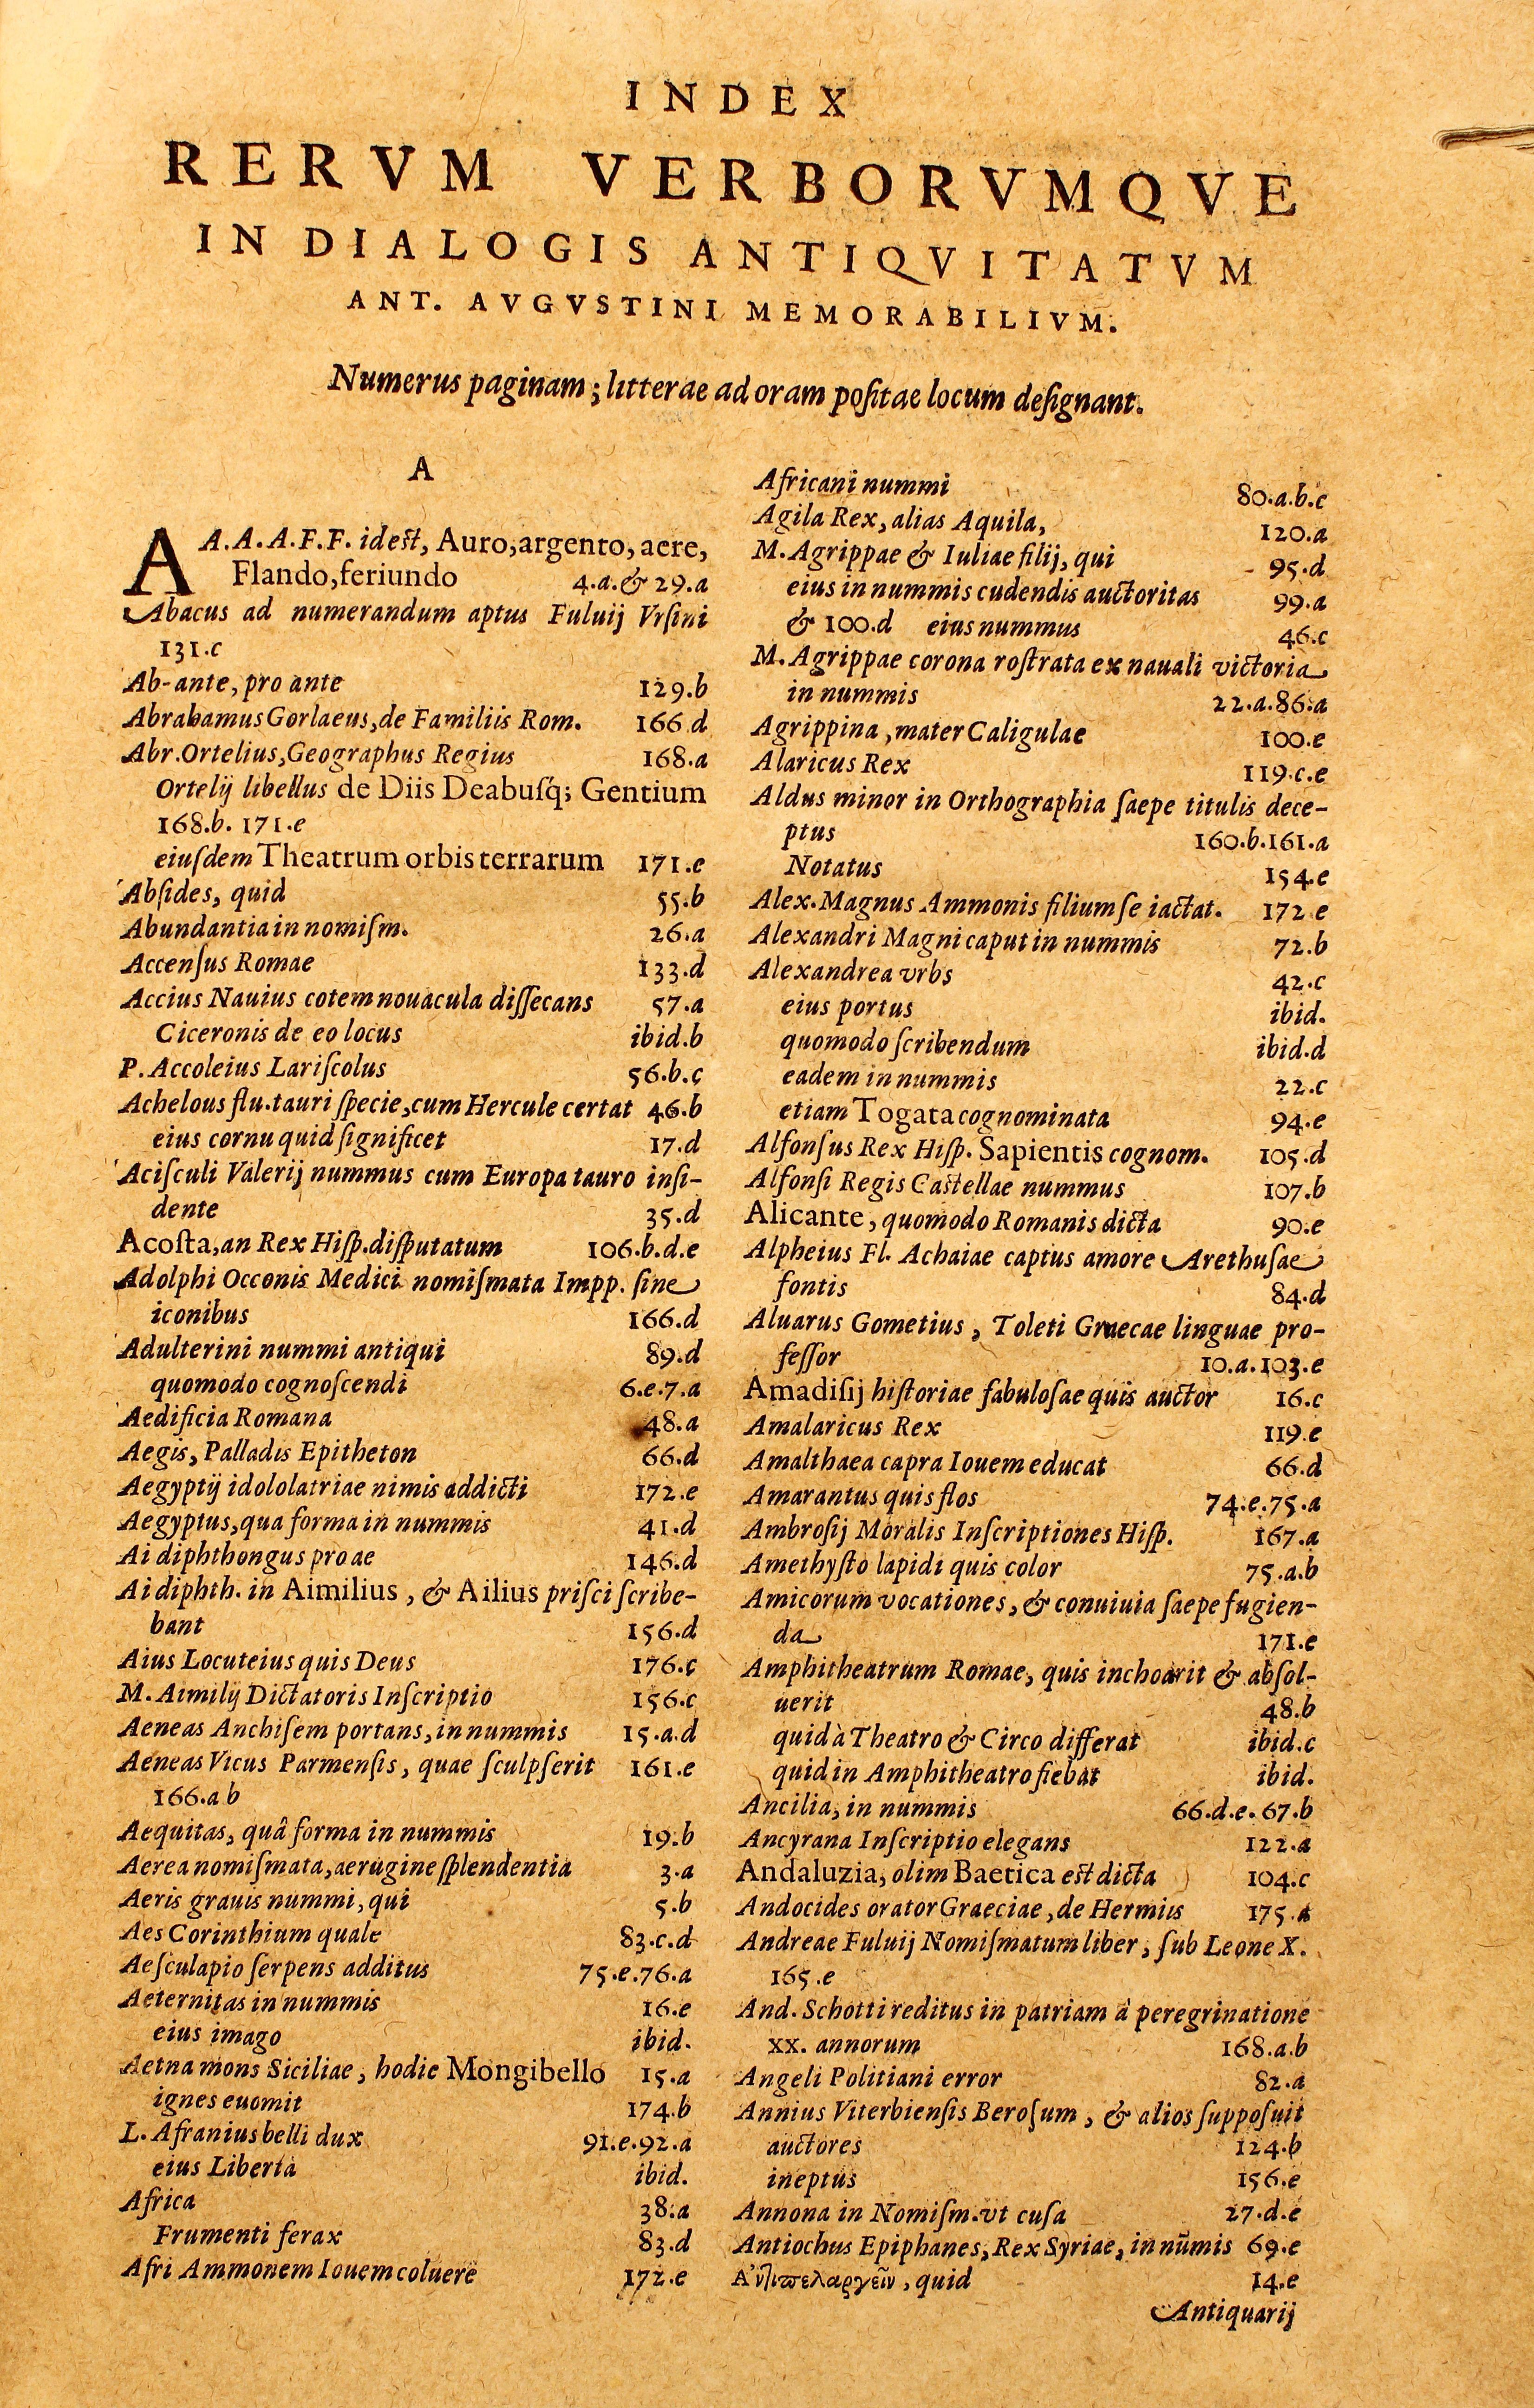 INDEX
RERVM VERBORVMQVE
IN DIALOGIS ANTIQVITATVM
ANT. AVGVSTINI MEMORABILIVM.
Numerus paginam; litterae ad oram poſitae locum deſignant.
A
A A.A.A.F.F. ideſt, Auro, argento, aere,
Flando, feriundo 4.a.& 29.a
Abacus ad numerandum aptus Fuluij Vrſini
131.c
Ab-ante, pro ante 129.b
Abrahamus Gorlaeus, de Familiis Rom. 166.d
Abr. Ortelius, Geographus Regius 168.a
Ortelij libellus de Diis Deabuſq; Gentium
168.b. 171.e
eiuſdem Theatrum orbis terrarum 171.e
Abſides, quid 55.b
Abundantia in nomiſm. 26.a
Accenſus Romae 133.d
Accius Nauius cotem nouacula diſſecans 57.a
Ciceronis de eo locus ibid.b
P. Accoleius Lariſcolus 56.b.c
Achelous flu. tauri ſpecie, cum Hercule certat 46.b
eius cornu quid ſignificet 17.d
Aciſculi Valerij nummus cum Europa tauro inſi-
dente 35.d
Acoſta, an Rex Hiſp. diſputatum 106.b.d.e
Adolphi Occonis Medici nomiſmata Impp. ſine
iconibus 166.d
Adulterini nummi antiqui 89.d
quomodo cognoſcendi 6.e.7.a
Aedificia Romana 48.a
Aegis, Palladis Epitheton 66.d
Aegyptij idololatriae nimis addicti 172.e
Aegyptus, qua forma in nummis 41.d
Ai diphthongus pro ae 146.d
Ai diphth. in Aimilius, & Ailius priſci ſcribe-
bant 156.d
Aius Locuteius quis Deus 176.c
M. Aimilij Dictatoris Inſcriptio 156.c
Aeneas Anchiſem portans, in nummis 15.a.d
Aeneas Vicus Parmenſis, quae ſculpſerit 161.e
166.a b
Aequitas, quâ forma in nummis 19.b
Aerea nomiſmata, aerugine ſplendentia 3.a
Aeris grauis nummi, qui 5.b
Aes Corinthium quale 83.c.d
Aeſculapio ſerpens additus 75.e.76.a
Aeternitas in nummis 16.e
eius imago ibid.
Aetna mons Siciliae, hodie Mongibello 15.a
ignes euomit 174.b
L. Afranius belli dux 91.e.92.a
eius Liberta ibid.
Africa 38.a
Frumenti ferax 83.d
Afri Ammonem Iouem coluere 172.e
Africani nummi 80.a.b.c
Agila Rex, alias Aquila, 120.a
M. Agrippae & Iuliae filij, qui 95.d
eius in nummis cudendis auctoritas 99.a
& 100.d eius nummus 46.c
M. Agrippae corona roſtrata ex nauali victoria
in nummis 22.a.86.a
Agrippina, mater Caligulae 100.e
Alaricus Rex 119.c.e
Aldus minor in Orthographia ſaepe titulis dece-
ptus 160.b.161.a
Notatus 154.e
Alex. Magnus Ammonis filium ſe iactat. 172 e
Alexandri Magni caput in nummis 72.b
Alexandrea vrbs 42.c
eius portus ibid.
quomodo ſcribendum ibid.d
eadem in nummis 22.c
etiam Togata cognominata 94.e
Alfonſus Rex Hiſp. Sapientis cognom. 105.d
Alfonſi Regis Caſtellae nummus 107.b
Alicante, quomodo Romanis dicta 90.e
Alpheius Fl. Achaiae captus amore Arethuſae
fontis 84.d
Aluarus Gometius, Toleti Graecae linguae pro-
feſſor 10.a.103.e
Amadiſij hiſtoriae fabuloſae quis auctor 16.c
Amalaricus Rex 119.e
Amalthaea capra Iouem educat 66.d
Amarantus quis flos 74.e.75.a
Ambroſij Moralis Inſcriptiones Hiſp. 167.a
Amethyſto lapidi quis color 75.a.b
Amicorum vocationes, & conuiuia ſaepe fugien-
da 171.e
Amphitheatrum Romae, quis inchoarit & abſol-
uerit 48.b
quid à Theatro & Circo differat ibid.c
quid in Amphitheatro fiebat ibid.
Ancilia, in nummis 66.d.e.67.b
Ancyrana Inſcriptio elegans 122.a
Andaluzia, olim Baetica eſt dicta 104.c
Andocides orator Graeciae, de Hermiis 175.a
Andreae Fuluij Nomiſmatum liber, ſub Leone X.
165.e
And. Schotti reditus in patriam à peregrinatione
xx. annorum 168.a.b
Angeli Politiani error 82.a
Annius Viterbienſis Beroſum, & alios ſuppoſuit
auctores 124.b
ineptus 156.e
Annona in Nomiſm. vt cuſa 27.d.e
Antiochus Epiphanes, Rex Syriae, in nūmis 69.e
Ἀντιπελαργεῖν, quid 14.e
Antiquarij